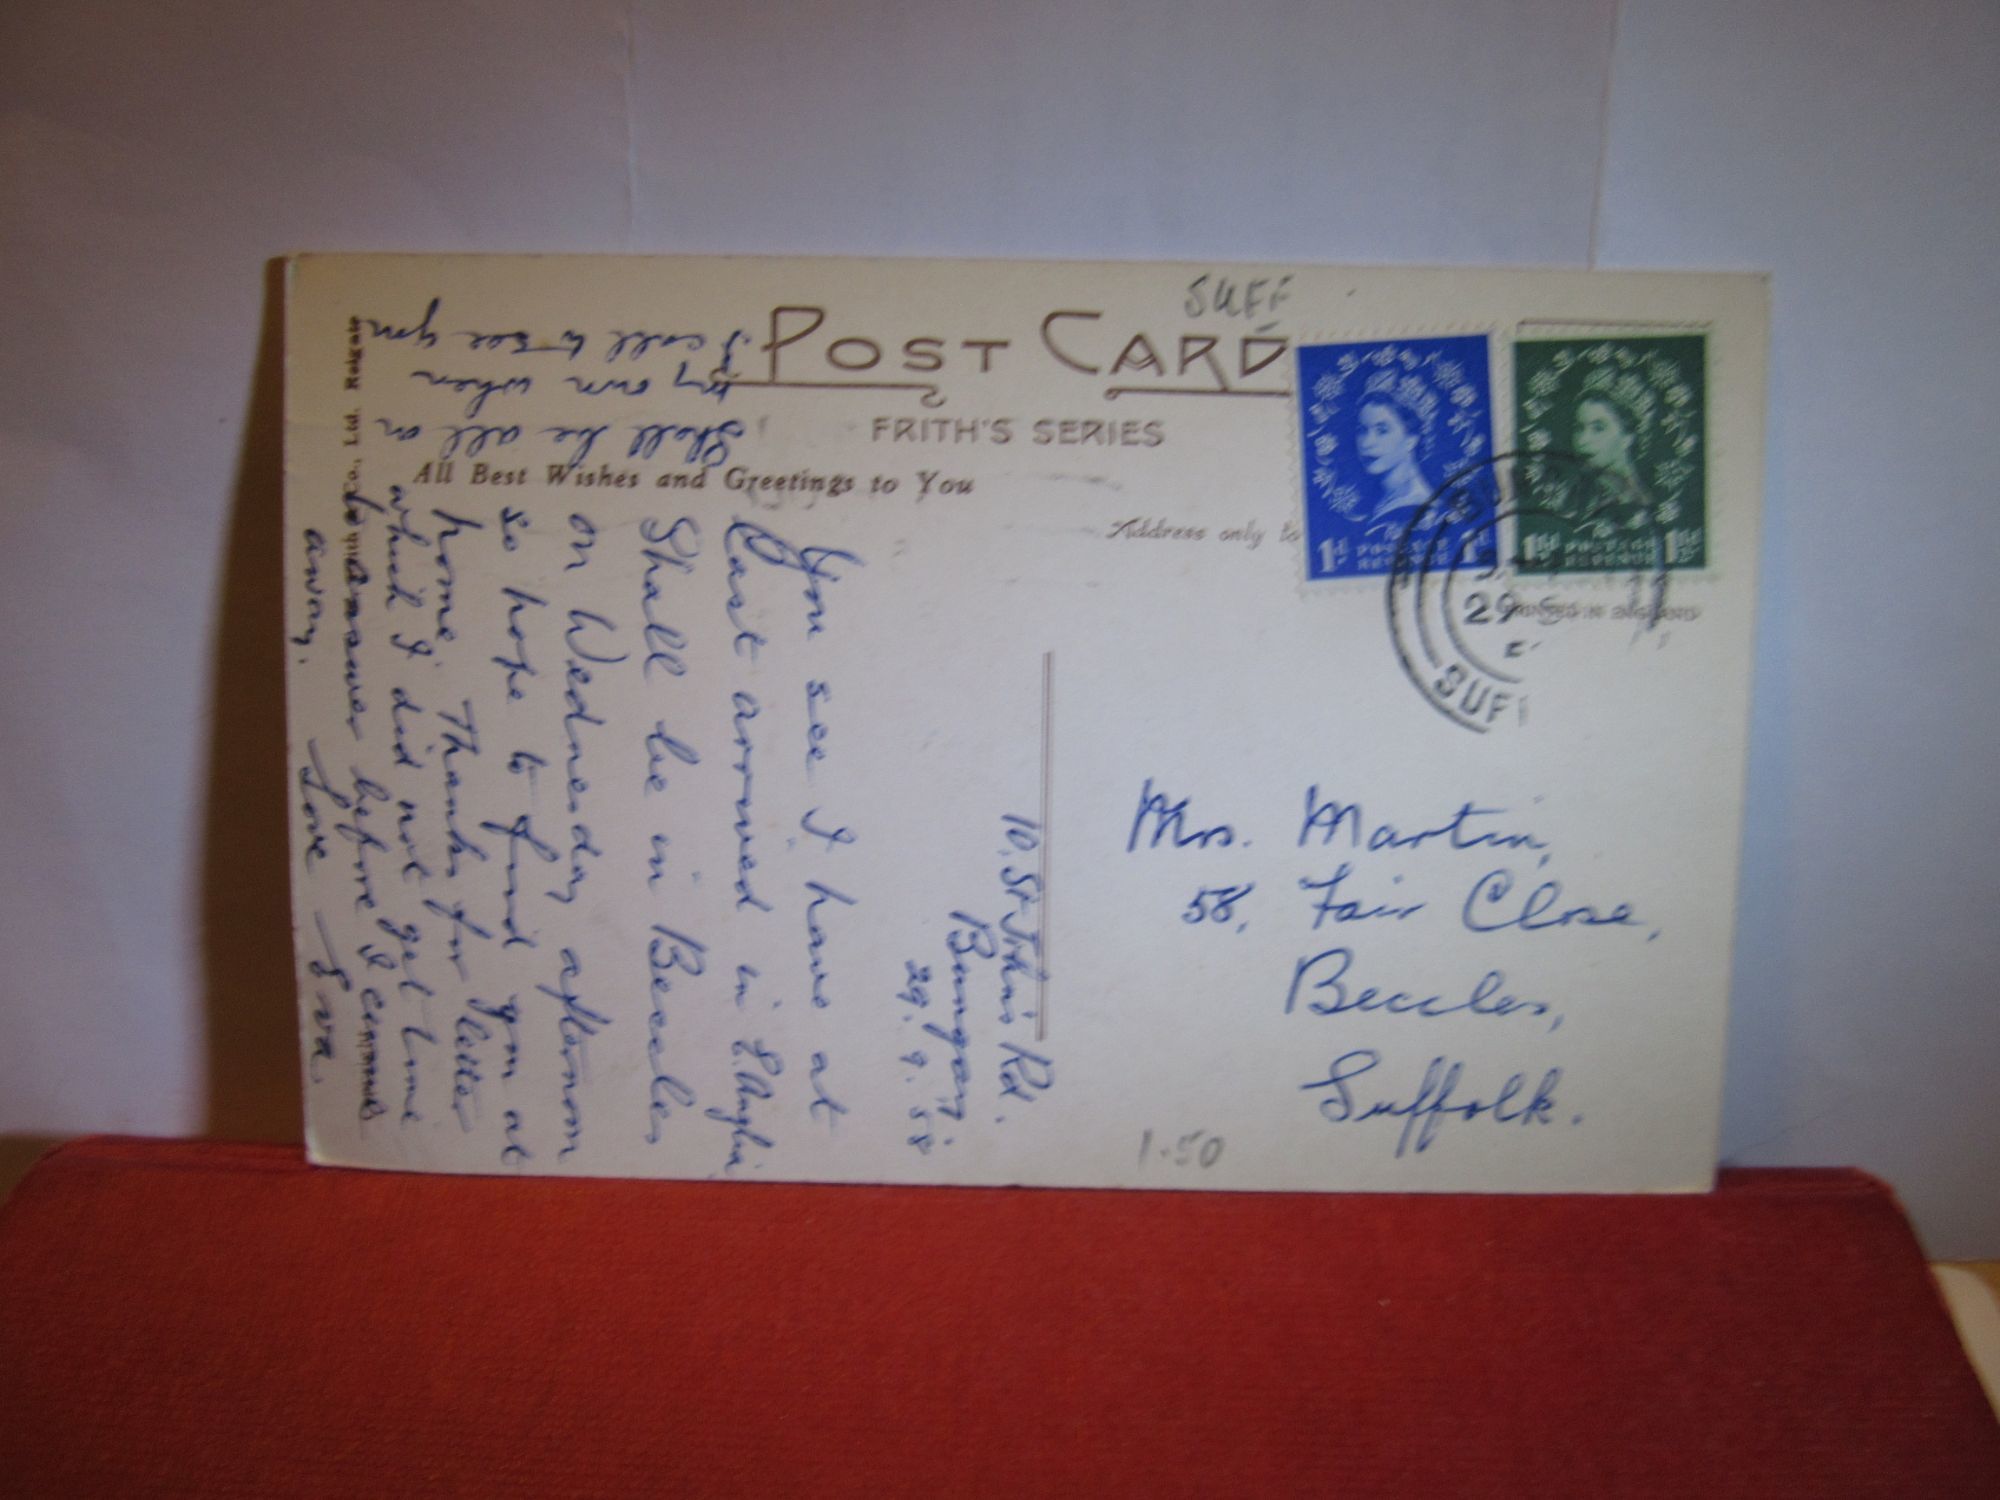 SUFF
POST CARD
FRITH'S SERIES
All Best Wishes and Greetings to You
Address only to
1d POSTAGE REVENUE 1d
1½d POSTAGE REVENUE 1½d
PRINTED IN ENGLAND
29
SUFF
Mrs. Martin,
58, Fair Close,
Beccles,
Suffolk.
1.50
10, St John's Rd.
Bungay
29.9.58
You see I have at
last arrived in E. Anglia
Shall be in Beccles
on Wednesday afternoon
so hope to find you at
home. Thanks for letter
which I did not get time
to answer before I came
away.
Love Eva.
Shall be all on
my own when
I call to see you
Co., Ltd. Reigate